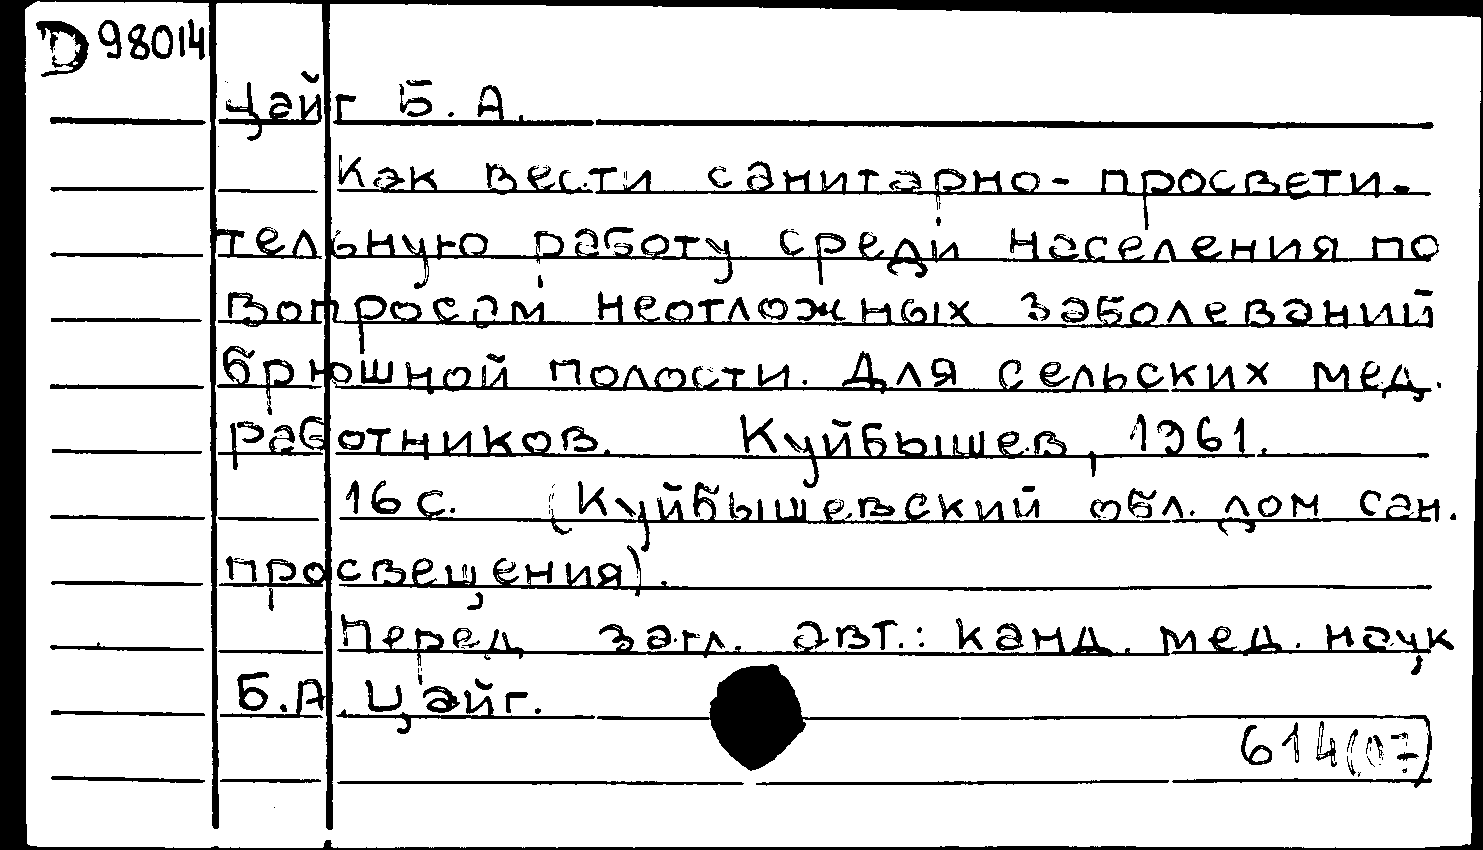 D 98014
Цайг Б. А.
Как вести санитарно-просвети-
тельную работу среди населения по
вопросам неотложных заболеваний
брюшной полости. Для сельских мед.
работников. Куйбышев, 1961.
16 с. (Куйбышевский обл. дом сан.
просвещения).
Перед загл. авт.: канд. мед. наук
Б.А. Цайг.
614(07)